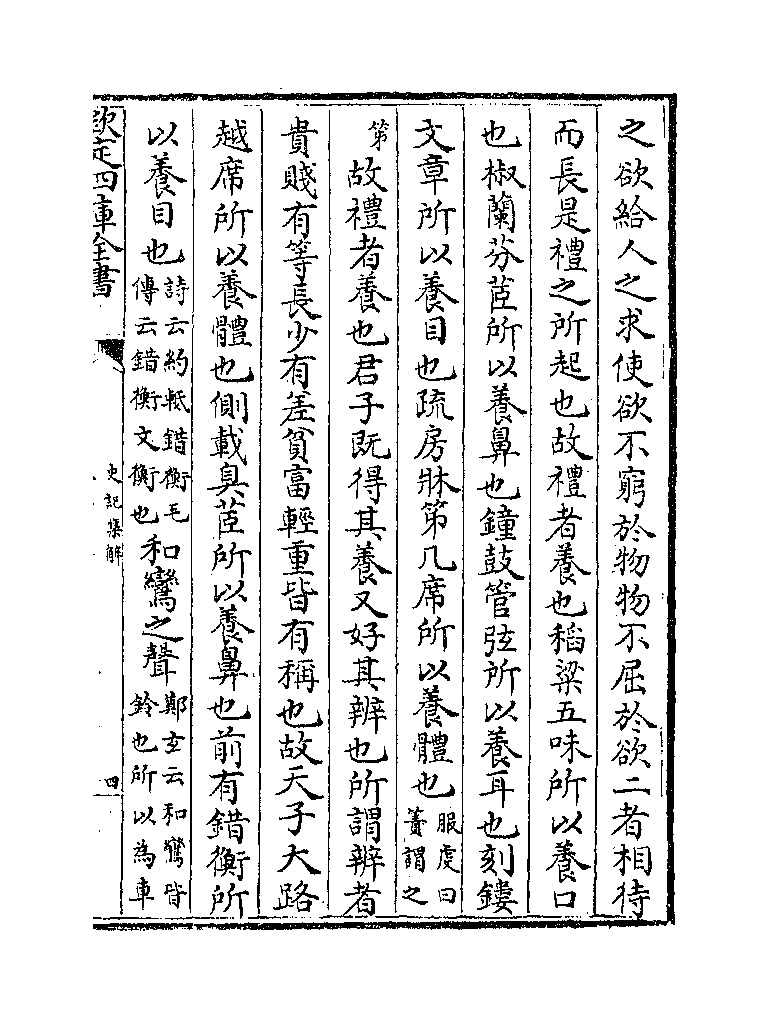 之欲給人之求使欲不窮於物物不屈於欲二者相待
而長是禮之所起也故禮者養也稻粱五味所以養口
也椒蘭芬茝所以養鼻也鐘鼓管弦所以養耳也刻鏤
文章所以養目也疏房牀第几席所以養體也服䖍曰簀謂之
第故禮者養也君子既得其養又好其辨也所謂辨者
貴賤有等長少有差貧富輕重皆有稱也故天子大路
越席所以養體也側載臭茝所以養鼻也前有錯衡所
以養目也詩云約軝錯衡毛傳云錯衡文衡也和鸞之聲鄭玄云和鸞皆鈴也所以為車
欽定四庫全書
史記集解
四